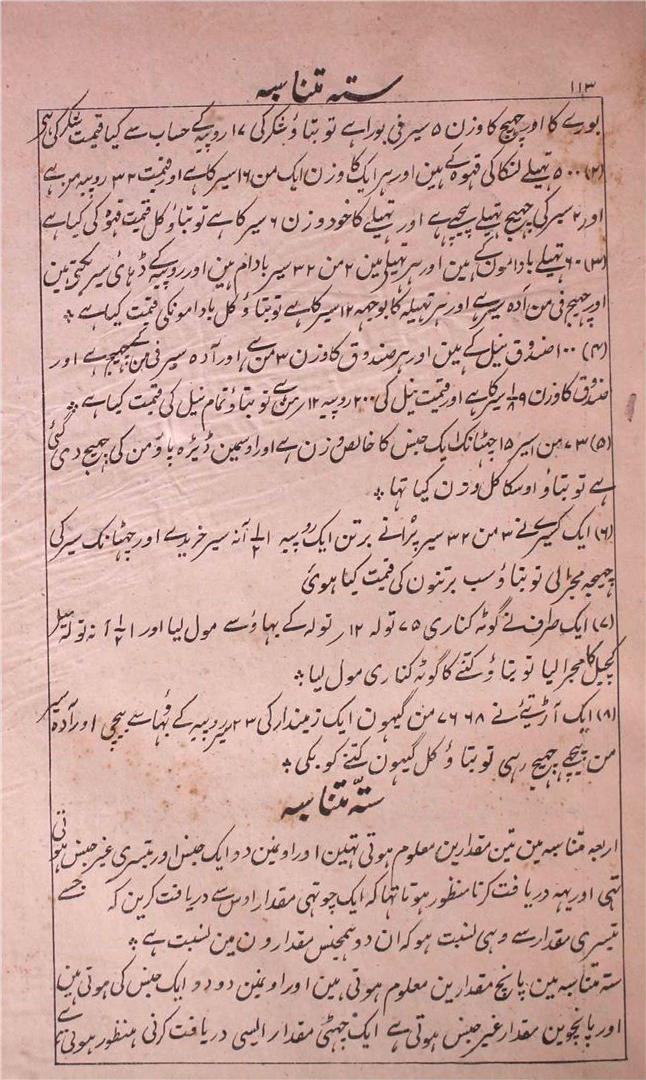 ۱۱۳
ستہ متناسبہ
بورے کا اور چھیج کا وزن ۵ سیر فی بورا ہے تو بتاؤ شکر کی ۱۷ روپیہ کے حساب سے کیا قیمت شکر کی ہی
(۲) ۵۰۰ تھیلے لنکا کی قہوہ کے ہین اور ہر ایک کا وزن ایک من ۱۶ سیر کا ہے اور قیمت ۳۲ روپیہ من ہے
اور ۲ سیر کی چھیج تھیلے پیچھے ہے اور تھیلے کا خود وزن ۶ سیر کا ہے تو بتاؤ کل قیمت قہوہ کی کیا ہے
(۳) ۶۰ تھیلے بادامون کے ہین اور ہر تھیلے مین ۲ من ۳۲ سیر بادام ہین اور روپیہ کے ڈہائی سیر بکتی ہین
اور چھیج فی من آدہ سیر ہے اور ہر تھیلہ کا بوجھہ ۱۲ سیر کا ہے تو بتاؤ کل بادامونکی قیمت کیا ہے ٭
(۴) ۱۰۰ صندوق نیل کے ہین اور ہر صندوق کا وزن ۳ من ہے اور آدہ سیر فی من کے چھیج ہے اور
صندوق کا وزن ۹ ۱/۸ سیر کا ہے اور قیمت نیل کی ۲۰۰ روپیہ ۱۲؍ من ہے تو بتاؤ تمام نیل کی قیمت کیا ہے ٭
(۵) ۷۳ من سیر ۱۵ چٹانک ایک جنس کا خالص وزن ہے اور اوسمین ڈیڑہ پاؤ من کی چھیج دی گئی
ہے تو بتاؤ اوسکا کل وزن کیا تہا ٭
(۶) ایک کسیرے نے ۳ من ۳۲ سیر پرانے برتن ایک روپیہ ۱/۲ ۱ آنہ سیر خریدے اور چھٹانک سیر کی
چھیجہ مجرا لی تو بتاؤ سب برتنون کی قیمت کیا ہوئی
(۷) ایک طرف نے گوٹہ کناری ۷۵ تولہ ۱۲؍ تولہ کے بہاؤ سے مول لیا اور ۱/۲ ۱ آنہ تولہ میل
کچیل کا مجرا لیا تو بتاؤ کتنے کا گوٹہ کناری مول لیا ٭
(۸) ایک آڑتیے نے ۷۶۶۸ من گیہون ایک زمیندار کی ۲۳ سیر روپیہ کے بہاؤ سے بیچی اور آدہ سیر
من پیچھے چھیج رہی تو بتاؤ کل گیہون کتنے کو بکی ٭
ستہ متناسبہ
اربعہ متناسبہ مین تین مقدارین معلوم ہوتی تہین اور اونمین دو ایک جنس اور تیسری غیر جنس ہوتی
تہی اور یہہ دریافت کرنا منظور ہوتا تہا کہ ایک چوتہی مقدار اوس سے دریافت کرین کہ جسے
تیسری مقدار سے وہی نسبت ہو کہ ان دو ہمجنس مقدارون مین نسبت ہے ٭
ستہ متناسبہ مین پانچ مقدارین معلوم ہوتی ہین اور اونمین دو دو ایک جنس کی ہوتی ہین
اور پانچوین مقدار غیر جنس ہوتی ہے ایک چھٹی مقدار ایسی دریافت کرنی منظور ہوتی ہے